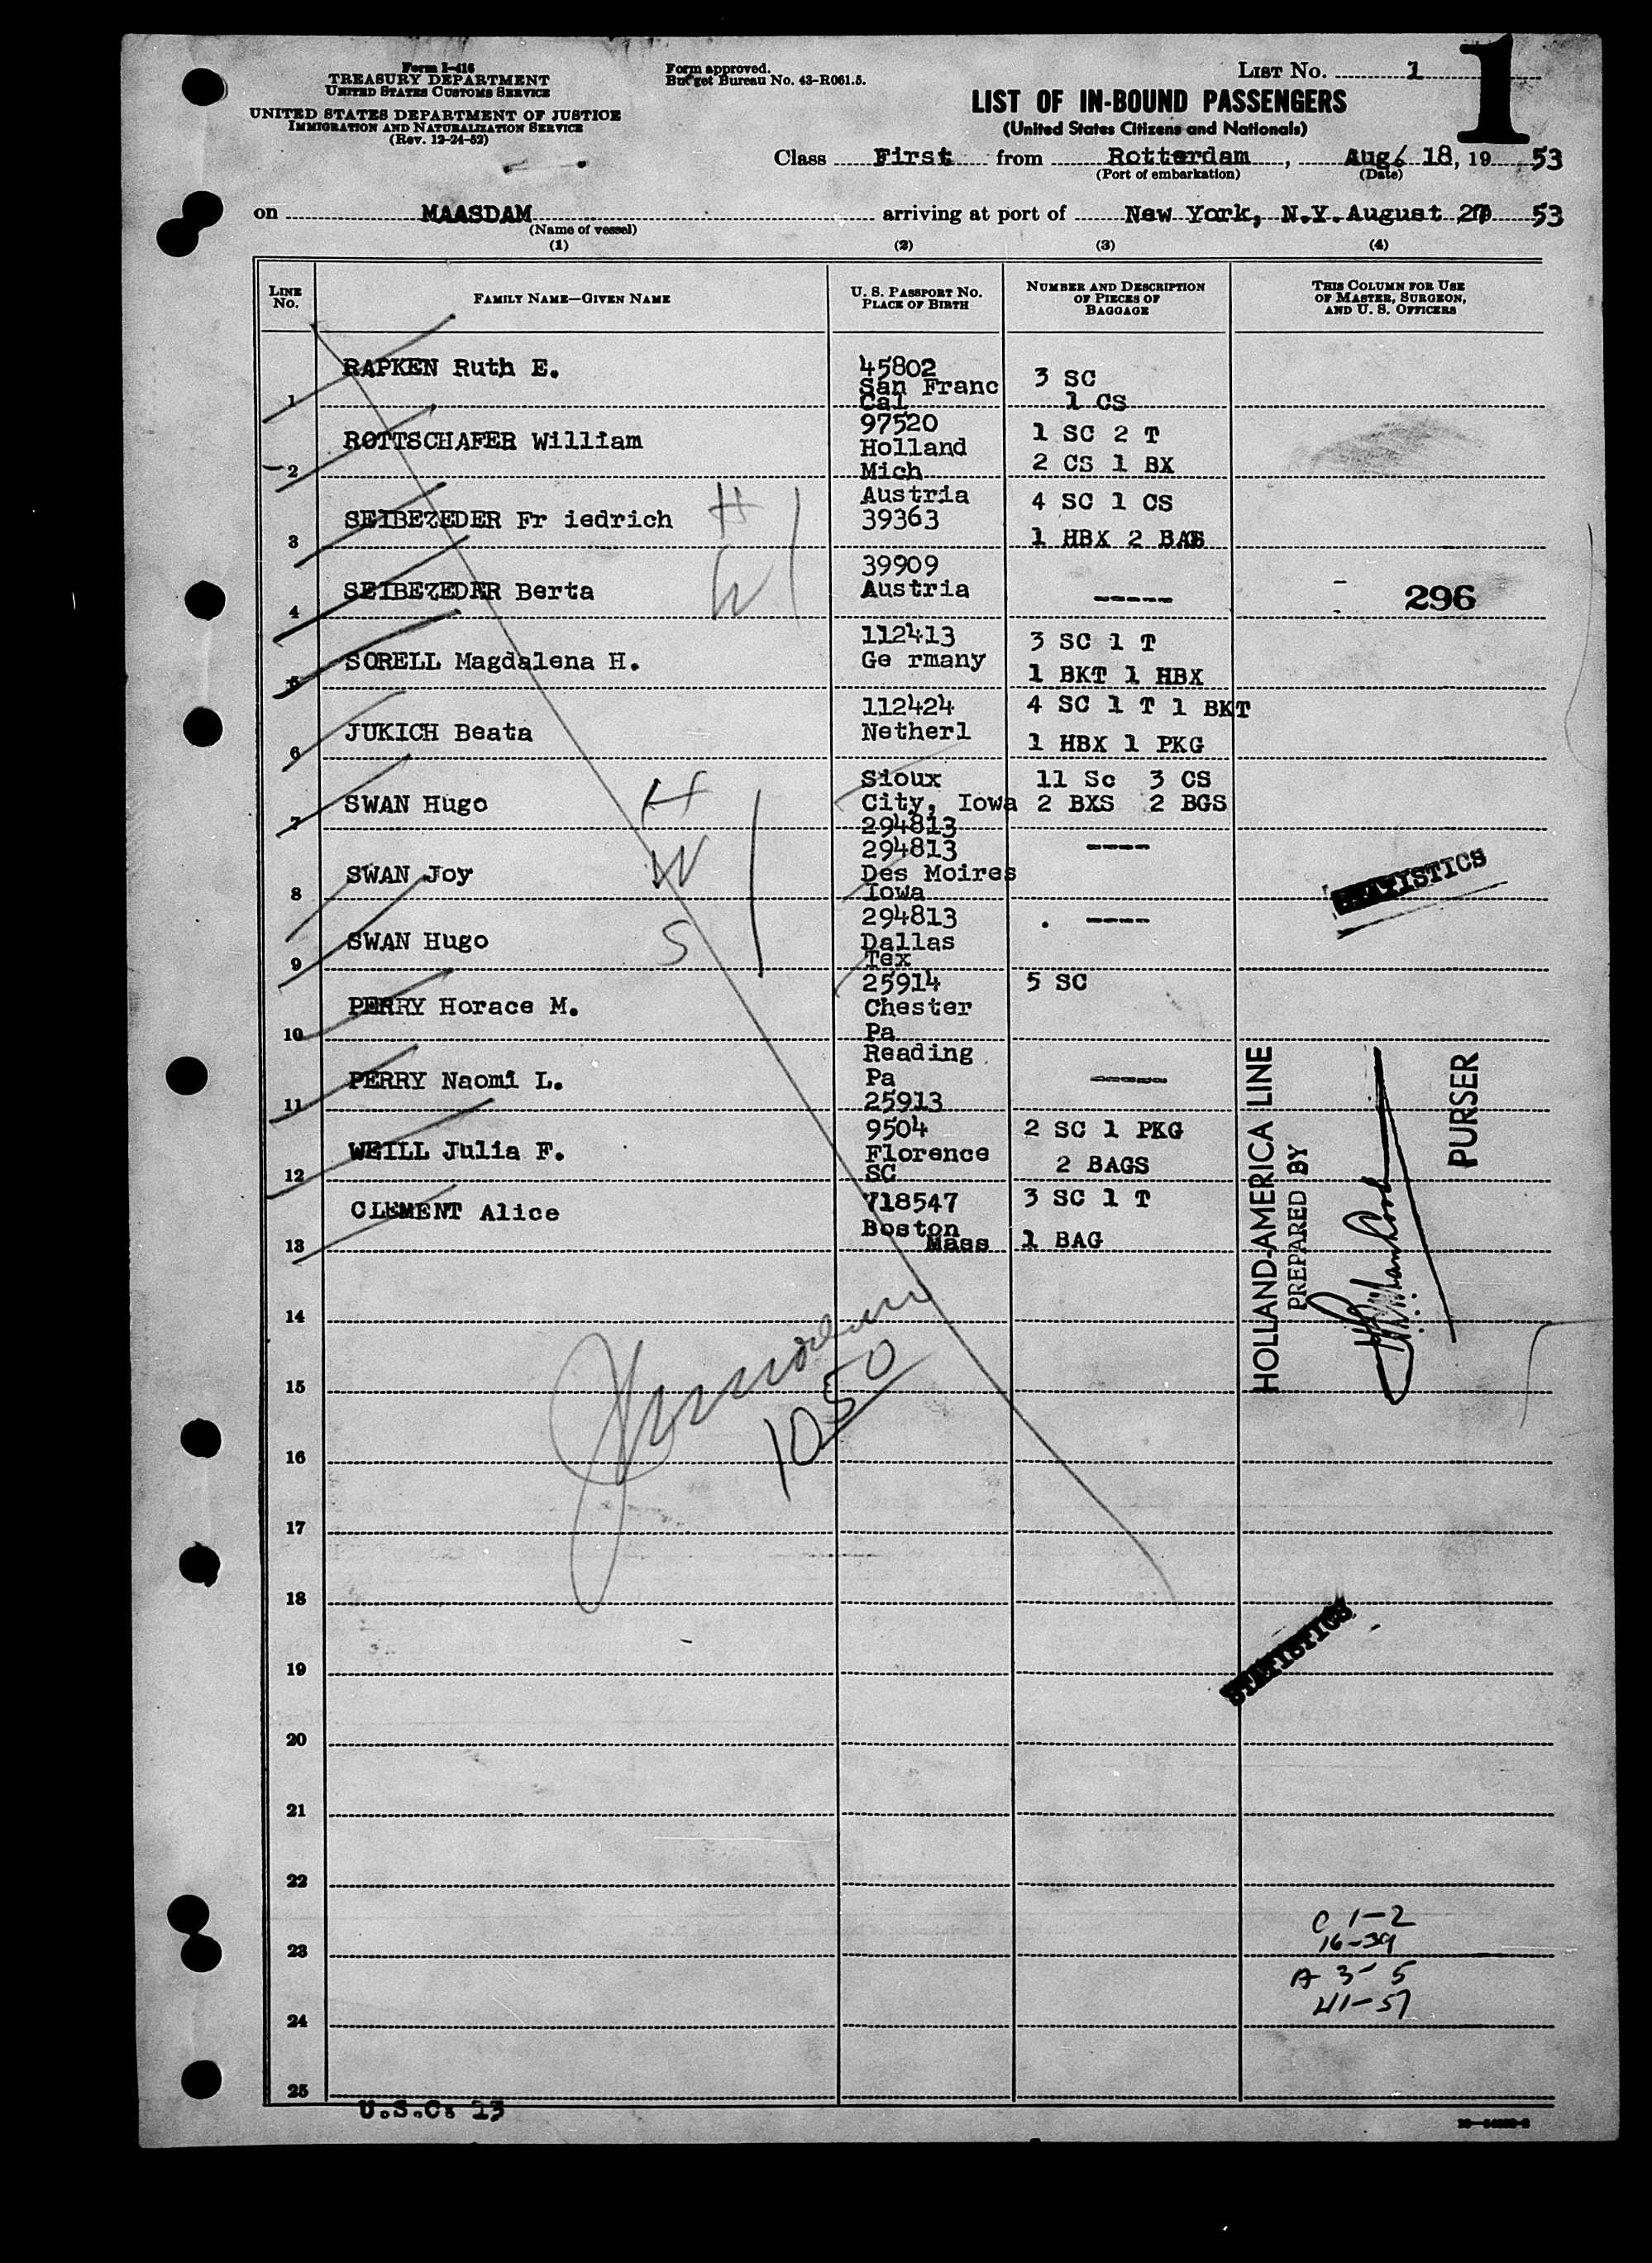 Form I-416
TREASURY DEPARTMENT
UNITED STATES CUSTOMS SERVICE
UNITED STATES DEPARTMENT OF JUSTICE
IMMIGRATION AND NATURALIZATION SERVICE
(Rev. 12-24-52)
Form approved.
Budget Bureau No. 43-R061.5.
LIST NO. 1
1
LIST OF IN-BOUND PASSENGERS
(United States Citizens and Nationals)
Class First from Rotterdam, Aug 18, 19 53
(Port of embarkation) (Date)
on MAASDAM arriving at port of New York, N.Y. August 53
(Name of vessel)
(1) (2) (3) (4)
LINE NO.
FAMILY NAME—GIVEN NAME
U. S. PASSPORT NO.
PLACE OF BIRTH
NUMBER AND DESCRIPTION
OF PIECES OF
BAGGAGE
THIS COLUMN FOR USE
OF MASTER, SURGEON,
AND U. S. OFFICERS
1 RAPKEN Ruth E.
45802
San Franc
Cal
3 SC
1 CS
2 ROTTSCHAFER William
97520
Holland
Mich
1 SC 2 T
2 CS 1 BX
3 SEIBEZEDER Fr iedrich H
Austria
39363
4 SC 1 CS
1 HBX 2 BAG
4 SEIBEZEDER Berta W
39909
Austria
-----
296
5 SORELL Magdalena H.
112413
Ge rmany
3 SC 1 T
1 BKT 1 HBX
6 JUKICH Beata
112424
Netherl
4 SC 1 T 1 BKT
1 HBX 1 PKG
7 SWAN Hugo H
Sioux
City, Iowa
294813
11 Sc 3 CS
2 BXS 2 BGS
8 SWAN Joy W
294813
Des Moires
Iowa
----
STATISTICS
9 SWAN Hugo S
294813
Dallas
Tex
. ----
10 PERRY Horace M.
25914
Chester
Pa
5 SC
11 PERRY Naomi L.
Reading
Pa
25913
-----
12 WEILL Julia F.
9504
Florence
SC
2 SC 1 PKG
2 BAGS
13 CLEMENT Alice
718547
Boston
Mass
3 SC 1 T
1 BAG
HOLLAND-AMERICA LINE
PREPARED BY
PURSER
14
15
1050
16
17
18
STATISTICS
19
20
21
22
23
24
25
C 1-2
16-39
A 3-5
41-57
U.S.C: 13